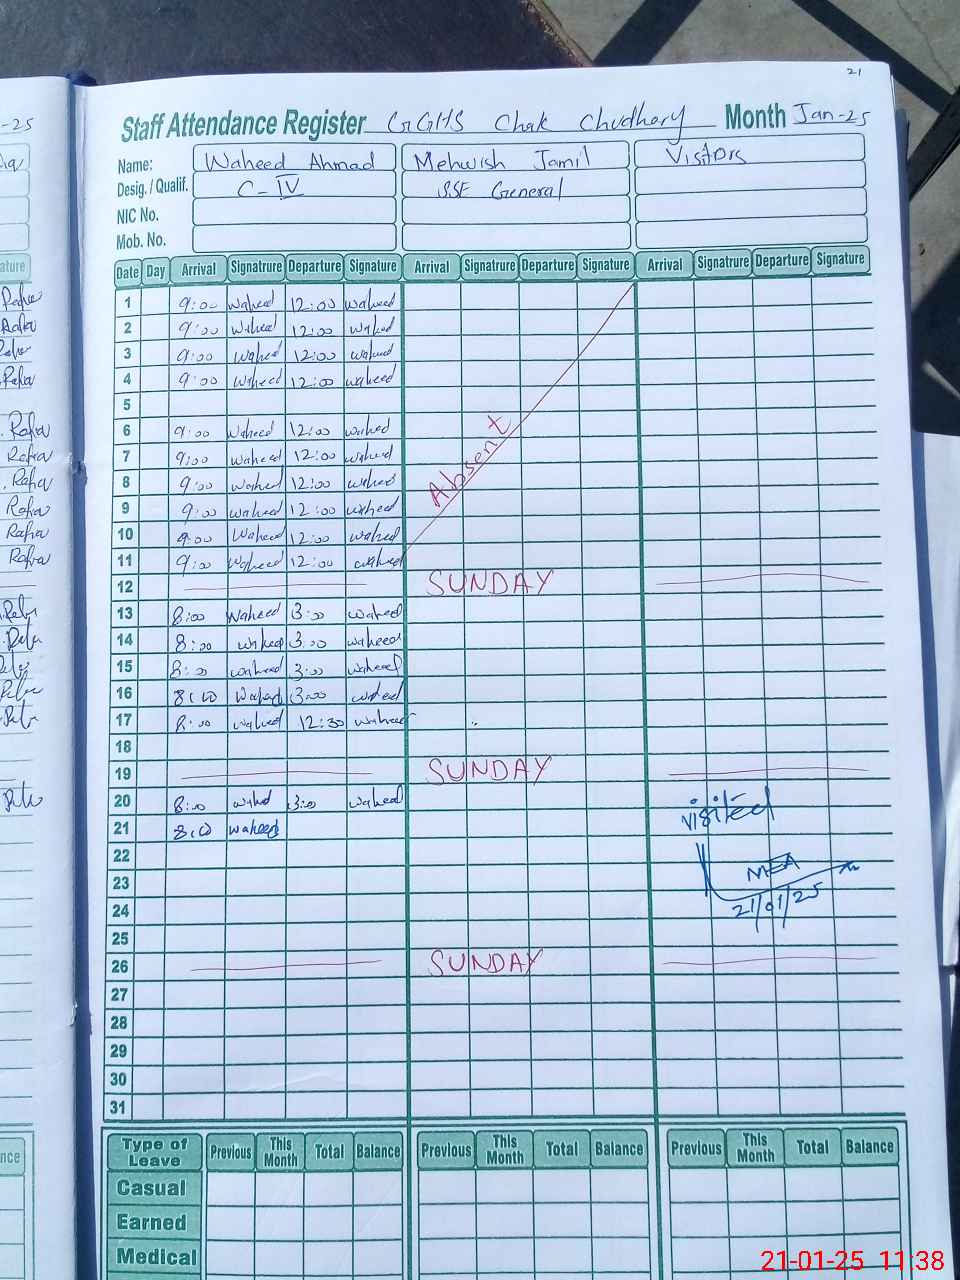 21
Staff Attendance Register GGHS Chak Chudhary Month Jan-25
Name: Waheed Ahmad Mehwish Jamil Visitors
Desig. / Qualif. C-IV SSE General
NIC No.
Mob. No.
Date Day Arrival Signatrure Departure Signature Arrival Signatrure Departure Signature Arrival Signatrure Departure Signature
1 9:00 Waheed 12:00 Waheed
2 9:00 Waheed 12:00 Waheed
3 9:00 Waheed 12:00 Waheed
4 9:00 Waheed 12:00 Waheed
5
6 9:00 Waheed 12:00 Waheed
7 9:00 Waheed 12:00 Waheed
8 9:00 Waheed 12:00 Waheed
9 9:00 Waheed 12:00 Waheed
10 9:00 Waheed 12:00 Waheed
11 9:00 Waheed 12:00 Waheed
Absent
12 SUNDAY
13 8:00 Waheed 3:00 Waheed
14 8:00 Waheed 3:00 Waheed
15 8:00 Waheed 3:00 Waheed
16 8:00 Waheed 3:00 Waheed
17 8:00 Waheed 12:30 Waheed
18
19 SUNDAY
20 8:00 Waheed 3:00 Waheed
21 8:00 Waheed
visited
22
23 MEA
24 21/01/25
25
26 SUNDAY
27
28
29
30
31
Type of Leave Previous This Month Total Balance Previous This Month Total Balance Previous This Month Total Balance
Casual
Earned
Medical
21-01-25 11:38